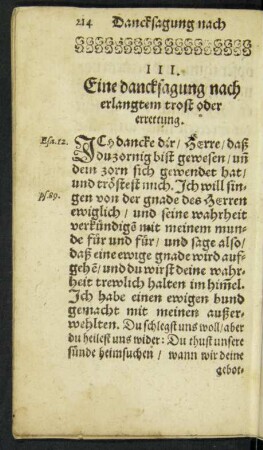 214 Dancksagung nach
III.
Eine dancksagung nach
erlangtem trost oder
errettung.
Esa. 12. ICh dancke dir / Herre / daß
du zornig bist gewesen / uñ
dein zorn sich gewendet hat /
und tröstest mich. Ich will sin-
ps. 89. gen von der gnade des Herren
ewiglich / und seine wahrheit
verkündigẽ mit meinem mun-
de für und für / und sage also /
daß eine ewige gnade wird auf-
gehẽ / und du wirst deine wahr-
heit trewlich halten im him̃el.
Ich habe einen ewigen bund
gemacht mit meinen außer-
wehlten. Du schlegst uns woll / aber
du heilest uns wider: Du thust unsere
sünde heimsuchen / wann wir deine
gebot-